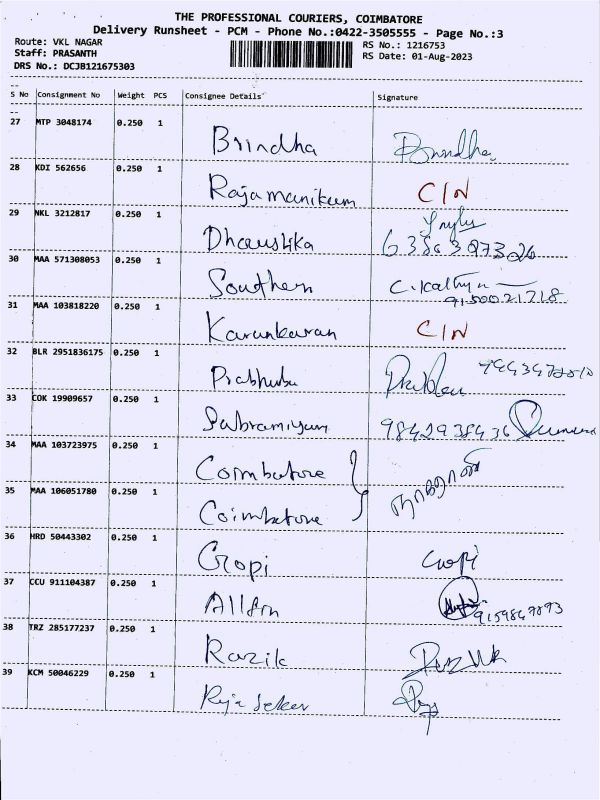 THE PROFESSIONAL COURIERS, COIMBATORE
Delivery Runsheet - PCM - Phone No.:0422-3505555 - Page No.:3
Route: VKL NAGAR RS No.: 1216753
Staff: PRASANTH RS Date: 01-Aug-2023
DRS No.: DCJB121675303
S No Consignment No Weight PCS Consignee Details Signature
27 MTP 3048174 0.250 1 Brindha Brindha
28 KDI 562656 0.250 1 Rajamanikum C/N
29 NKL 3212817 0.250 1 Dharshika
30 MAA 571308053 0.250 1 Southern
9150021718
31 MAA 103818220 0.250 1 Karunkaran C/N
32 BLR 2951836175 0.250 1 Prabhubu
33 COK 19909657 0.250 1 Subramiyum 9842938436
34 MAA 103723975 0.250 1 Coimbatore
35 MAA 106051780 0.250 1 Coimbatore
36 HRD 50443302 0.250 1 Gopi Gopi
37 CCU 911104387 0.250 1
38 TRZ 285177237 0.250 1 Razik
39 KCM 50046229 0.250 1 Raja Seker